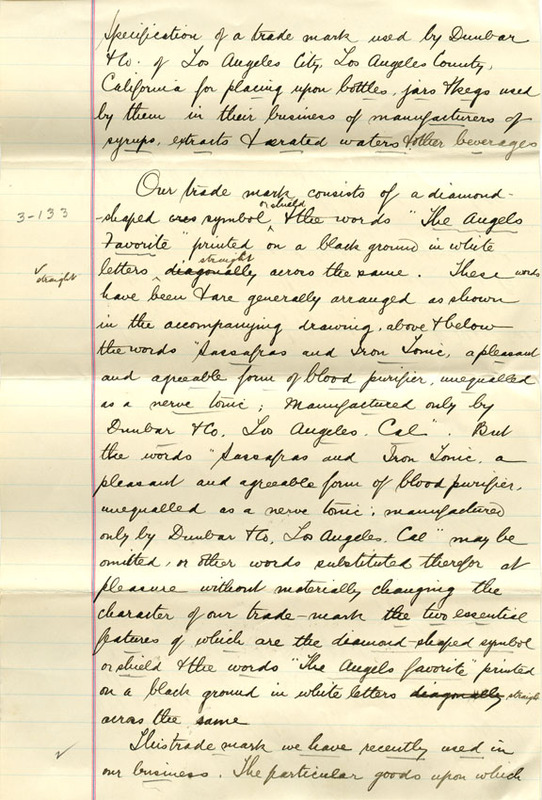 Specification of a trade mark used by Dunbar
& Co. of Los Angeles City, Los Angeles County,
California for placing upon bottles, jars & kegs used
by them in their business of manufacturers of
syrups, extracts & aerated waters & other beverages
Our trade mark consists of a diamond-
or shield
3-133
-shaped symbol & the words "The Angels
Favorite" printed on a black ground in white
straight
letters diagonally across the same. These words
straight
have been & are generally arranged as shown
in the accompanying drawing, above & below
the words "Sassafras and Iron Tonic, a pleasant
and agreeable form of blood purifier, unequalled
as a nerve tonic; Manufactured only by
Dunbar & Co, Los Angeles. Cal". But
the words "Sassafras and Iron Tonic, a
pleasant and agreeable form of blood purifier,
unequalled as a nerve tonic; manufactured
only by Dunbar & Co, Los Angeles. Cal" may be
omitted, or other words substituted therefor at
pleasure without materially changing the
character of our trade-mark the two essential
features of which are the diamond-shaped symbol
or shield & the words "The Angels favorite" printed
on a black ground in white letters diagonally straight
across the same
This trade mark we have recently used in
our business. The particular goods upon which